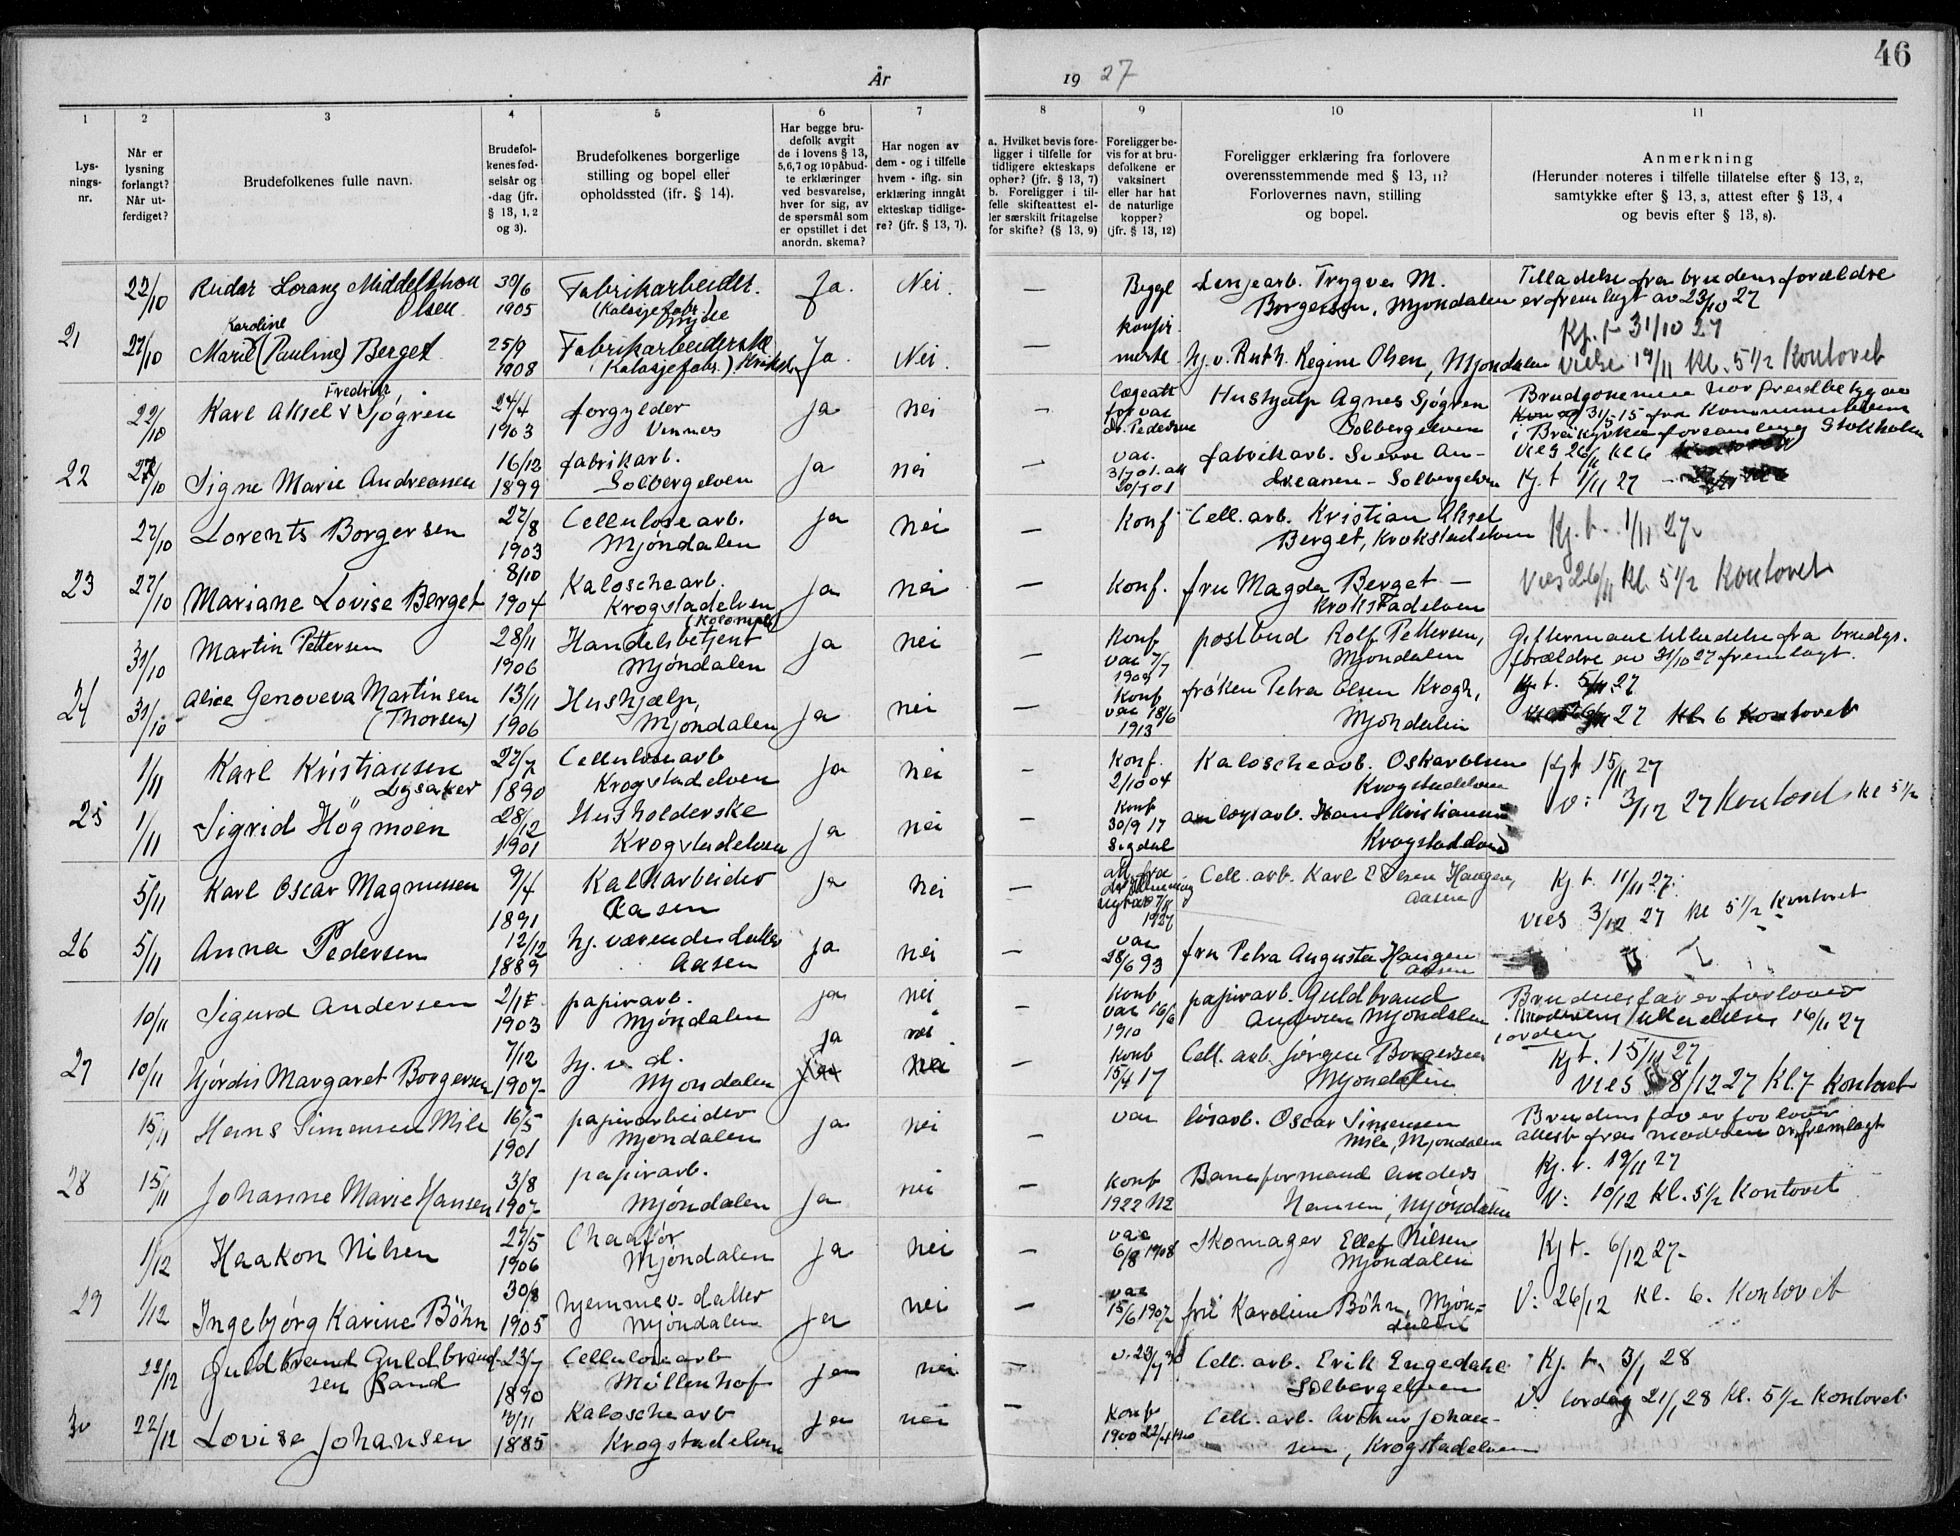 46
År 1927
1 2 3 4 5 6 7 8 9 10 11
Lysningsnr.
Når er lysning forlangt? Når utferdiget?
Brudefolkenes fulle navn.
Brudefolkenes fødselsår og -dag (jfr. § 13, 1, 2 og 3).
Brudefolkenes borgerlige stilling og bopel eller opholdssted (ifr. § 14).
Har begge brudefolk avgit de i lovens § 13, 5,6,7 og 10 påbudte erklæringer ved besvarelse, hver for sig, av de spørsmål som er opstillet i det anordn. skema?
Har nogen av dem - og i tilfelle hvem - iflg. sin erklæring inngått ekteskap tidligere? (jfr. § 13, 7).
a. Hvilket bevis foreligger i tilfelle for tidligere ekteskaps ophør? (jfr. § 13, 7) b. Foreligger i tilfelle skifteattest eller særskilt fritagelse for skifte? (§ 13, 9)
Foreligger bevis for at brudefolkene er vaksinert eller har hat de naturlige kopper? (jfr. § 13, 12)
Foreligger erklæring fra forlovere overensstemmende med § 13, 11? Forlovernes navn, stilling og bopel.
Anmerkning (Herunder noteres i tilfelle tillatelse efter § 13, 2, samtykke efter § 13, 3, attest efter § 13, 4 og bevis efter § 13, 8).
22/10 Reidar Lorang Middelthon Olsen 30/6 1905 Fabrikarbeider. (Kalosjefabr.) Ja. Nei. — Begge Linjearb. Trygve M. Borgersen, Mjøndalen Tilladelse fra brudens forældre er fremlagt av 23/10 27
Kj. t. 31/10 27
21 27/10 Marie Karoline (Pauline) Berget 25/9 1908 Fabrikarbeiderske (Kalosjefabr.) Ja. Nei. — konfir- merte hj. v. Ruth Regine Olsen, Mjøndalen Vielse 19/11 Kl. 5 1/2 Kontoret
22/10 Karl Aksel Fredrik Sjøgren 24/4 1903 forgylder Vinnes ja nei — Lægeatt for vac Hushjælp Agnes Sjøgren Solbergelven
i Stokholm
22 27/10 Signe Marie Andreassen 16/12 1899 fabrikarb. Solbergelven ja nei — vac. fabrikarb. Sverre Andreassen - Solbergelven Vies 26/11 Kl 6
Kj. t 1/11 27
27/10 Lorents Borgersen 27/8 1903 Cellulosearb. Mjøndalen ja nei — Konf Cell. arb. Kristian Aksel Berget, Krokstadelven Kj. t. 1/11 27
23 27/10 Mariane Lovise Berget 8/10 1904 Kaloschearb. Krogstadelven ja nei — Konf. fru Magda Berget — Krokstadelven Vies 26/11 Kl. 5 1/2 Kontoret
31/10 Martin Pettersen 28/11 1906 Handelsbetjent Mjøndalen ja nei — Konf vac 7/7 postbud Rolf Pettersen, Mjøndalen Giftermaal tilladelse fra brudgs. forældre av 31/10 27 fremlagt.
24 31/10 Alice Genoveva Martinsen (Thorsen) 13/11 1906 Hushjælp, Mjøndalen ja nei — Konf vac 18/6 1913 frøken Petra Olsen Krogh, Mjøndalen Kj. t. 5/11 27
27 Kl. 6 Kontoret
1/11 Karl Kristiansen Lysaker 27/7 1890 Cellulosearb Krogstadelven ja nei — Konf. 2/10 04 Kaloschearb. Oskar Olsen Krogstadelven Kj. t 15/11 27
V: 3/12 27 Kontoret Kl 5 1/2
25 1/11 Sigrid Högmoen 28/12 1901 Husholderske Krogstadelven ja nei — Konf 30/9 17 Sigdal anlægsarb. Hans Kristiansen Krogstadelven
5/11 Karl Oscar Magnussen 9/4 1891 Kalkarbeider Aasen ja nei — 1927 Cell. arb. Karl Olsen Haugen, Aasen Kj. t. 11/11 27.
Vies 3/12 27 Kl 5 1/2 Kontoret
26 5/11 Anna Pedersen 12/12 1889 hj. værende datter Aasen ja nei — vac 28/6 93 fru Petra Augusta Haugen Aasen
10/11 Sigurd Andersen 1903 papirarb. Mjøndalen ja nei — Konf vac 16/6 1910 papirarb. Guldbrand Andersen Mjøndalen Brudens far er forlover
Moderens tilladelse 16/11 27 i orden
27 10/11 Hjørdis Margaret Borgersen 7/12 1907 hj. v. d. Mjøndalen ja nei Konf 15/4 17 Cell. arb. Jørgen Borgersen Mjøndalen Kj t. 15/11 27
Vies 8/12 27 Kl. 7 Kontoret
15/11 Hans Simensen Mile 16/5 1901 papirarbeider Mjøndalen ja nei — vac løsarb. Oscar Simensen Mile, Mjøndalen Brudens far er forlover attest fra moderen er fremlagt
Kj. t. 19/11 27
28 15/11 Johanne Marie Hansen 3/8 1907 papirarb. Mjøndalen ja nei — Konf 1922 Baneformand Anders Hansen, Mjøndalen V: 10/12 Kl. 5 1/2 Kontoret
1/12 Haakon Nilsen 27/5 1906 Chaafør Mjøndalen ja nei — vac 6/8 1908 Skomager Ellef Nilsen Mjøndalen Kj t. 6/12 27
29 1/12 Ingebjørg Karine Böhn 30/8 1905 hjemmev. datter Mjøndalen ja nei — vac 15/6 1907 fru Karoline Böhn, Mjøndalen V: 26/12 Kl. 6. Kontoret
22/12 Guldbrand Guldbrandsen Sand 23/7 1890 Cellulosearb Möllenhof ja nei — Cell. arb. Erik Engedahl Solbergelven Kj. t. 3/1 28
V: lørdag 21/1 28 Kl. 5 1/2 Kontoret
30 22/12 Lovise Johansen 1885 Kaloschearb Krogstadelven ja nei — Konf 1900 Cell. arb. Arthur Johansen, Krogstadelven